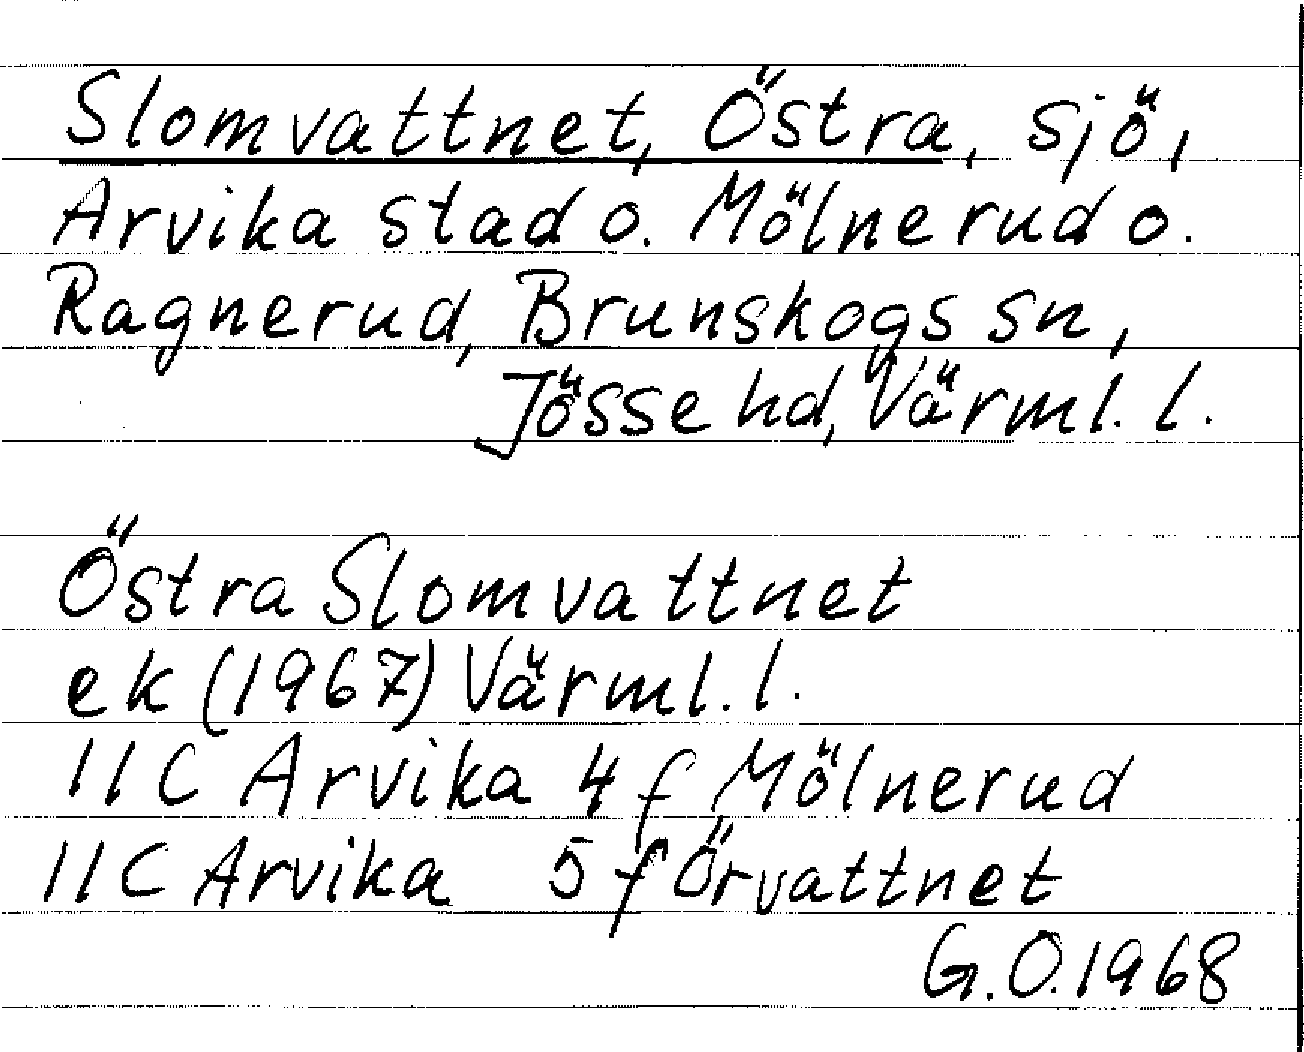 Slomvattnet, Östra, sjö,
Arvika stad o. Mölnerud o.
Ragnerud, Brunskogs sn,
Jösse hd, Värml. l.
Östra Slomvattnet
ek (1967) Värml. l.
11C Arvika 4 f Mölnerud
11C Arvika 5 f Örvattnet
G.O. 1968